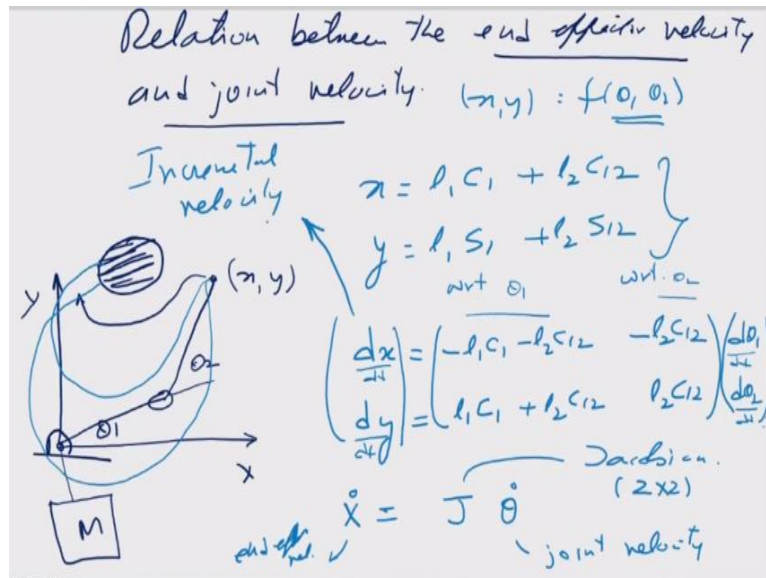 Relation between the end effector velocity
and joint velocity. (x,y) : f(θ, θ₂)
Incremetal
velocity
x = l₁ C₁ + l₂ C₁₂
y = l₁ S₁ + l₂ S₁₂
wrt θ₁ wrt. θ₂
y
(x, y)
θ₂
θ1
X
M
dx/dt = -l₁C₁ -l₂C₁₂ -l₂C₁₂ dθ₁/dt
dy/dt = l₁C₁ + l₂C₁₂ l₂C₁₂ dθ₂/dt
Jacobian.
(2x2)
Ẋ = J θ̇
end eff vel. joint velocity